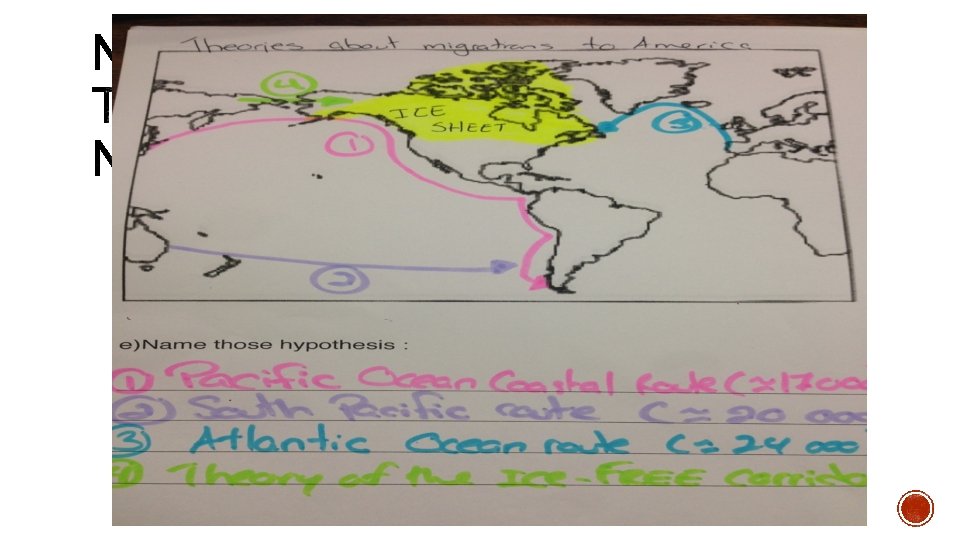 N
T
N
Theories about migrations to America
4
ICE
SHEET
3
1
2
e)Name those hypothesis :
① Pacific Ocean Coastal Route (≈17000
② South Pacific route (≈ 20 000
③ Atlantic Ocean route (≈ 24 000
④ Theory of the Ice-FREE Corrido